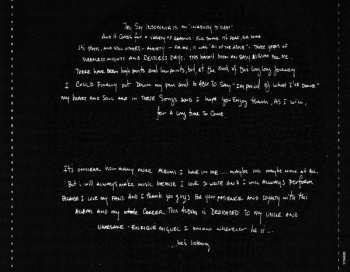 They Say Insomnia is an "inability to sleep"
And it comes for a variety of reasons. For some it's fear, for some
it's pain, and still others - anxiety - for me, it was all of the above. Three years of
sleepless nights and restless days. This hasn't been an easy album for me.
There have been high points and low points, but at the end of this long, long journey
I could finally put down my pen and be able to say "I'm proud of what I've done"
My heart and soul are in these songs and I hope you enjoy them, As I will,
for a long time to come.
It's unclear how many more albums I have in me.... maybe one maybe none at all.
But I will always make music because I love to write and I will always perform
because I love my fans and I thank you guys for your patience and loyalty with this
album and my whole career. This album is dedicated to my uncle and
namesake - Enrique Miguel I know wherever he is...
he's listening